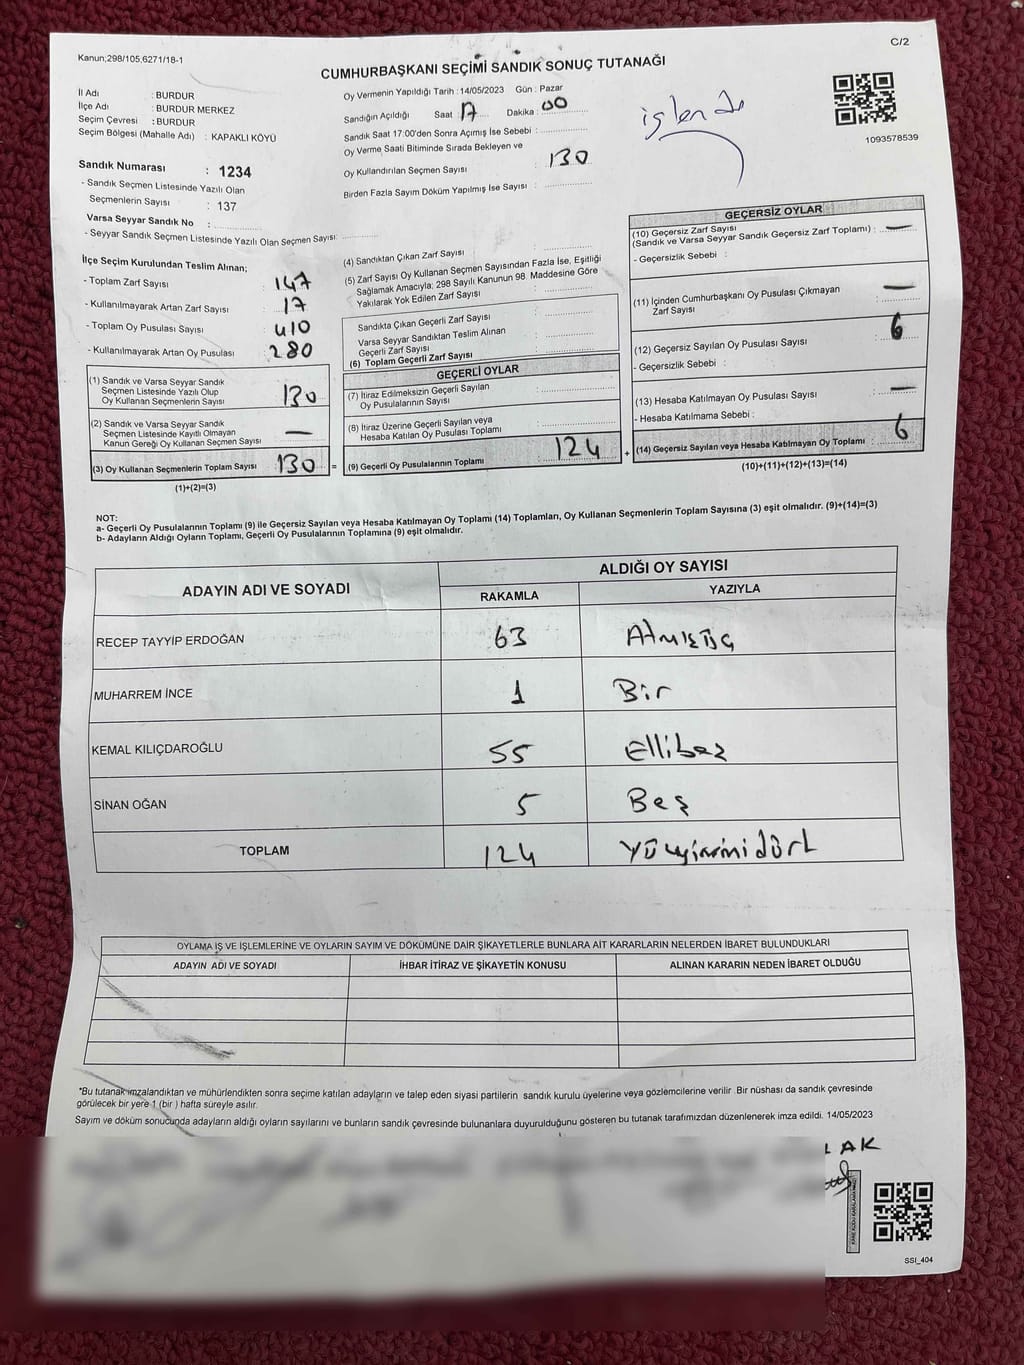 C/2
Kanun;298/105,6271/18-1
CUMHURBAŞKANI SEÇİMİ SANDIK SONUÇ TUTANAĞI
İl Adı : BURDUR
İlçe Adı : BURDUR MERKEZ
Seçim Çevresi : BURDUR
Seçim Bölgesi (Mahalle Adı) : KAPAKLI KÖYÜ
Sandık Numarası : 1234
- Sandık Seçmen Listesinde Yazılı Olan
Seçmenlerin Sayısı : 137
Varsa Seyyar Sandık No :
- Seyyar Sandık Seçmen Listesinde Yazılı Olan Seçmen Sayısı:
Oy Vermenin Yapıldığı Tarih :14/05/2023 Gün : Pazar
Sandığın Açıldığı Saat : 17 Dakika : 00
Sandık Saat 17:00'den Sonra Açımış İse Sebebi :
Oy Verme Saati Bitiminde Sırada Bekleyen ve
Oy Kullandırılan Seçmen Sayısı : 130
Birden Fazla Sayım Döküm Yapılmış İse Sayısı :
işlendi
1093578539
İlçe Seçim Kurulundan Teslim Alınan;
- Toplam Zarf Sayısı : 147
- Kullanılmayarak Artan Zarf Sayısı : 17
- Toplam Oy Pusulası Sayısı : 410
- Kullanılmayarak Artan Oy Pusulası : 280
(1) Sandık ve Varsa Seyyar Sandık
Seçmen Listesinde Yazılı Olup
Oy Kullanan Seçmenlerin Sayısı : 130
(2) Sandık ve Varsa Seyyar Sandık
Seçmen Listesinde Kayıtlı Olmayan
Kanun Gereği Oy Kullanan Seçmen Sayısı : —
(3) Oy Kullanan Seçmenlerin Toplam Sayısı : 130 =
(1)+(2)=(3)
(4) Sandıktan Çıkan Zarf Sayısı :
(5) Zarf Sayısı Oy Kullanan Seçmen Sayısından Fazla İse, Eşitliği
Sağlamak Amacıyla; 298 Sayılı Kanunun 98. Maddesine Göre
Yakılarak Yok Edilen Zarf Sayısı :
Sandıkta Çıkan Geçerli Zarf Sayısı :
Varsa Seyyar Sandıktan Teslim Alınan
Geçerli Zarf Sayısı :
(6) Toplam Geçerli Zarf Sayısı :
GEÇERLİ OYLAR
(7) İtiraz Edilmeksizin Geçerli Sayılan
Oy Pusulalarının Sayısı :
(8) İtiraz Üzerine Geçerli Sayılan veya
Hesaba Katılan Oy Pusulası Toplamı :
(9) Geçerli Oy Pusulalarının Toplamı : 124 +
GEÇERSİZ OYLAR
(10) Geçersiz Zarf Sayısı
(Sandık ve Varsa Seyyar Sandık Geçersiz Zarf Toplamı) : —
- Geçersizlik Sebebi :
(11) İçinden Cumhurbaşkanı Oy Pusulası Çıkmayan
Zarf Sayısı : —
(12) Geçersiz Sayılan Oy Pusulası Sayısı : 6
- Geçersizlik Sebebi :
(13) Hesaba Katılmayan Oy Pusulası Sayısı : —
- Hesaba Katılmama Sebebi :
(14) Geçersiz Sayılan veya Hesaba Katılmayan Oy Toplamı : 6
(10)+(11)+(12)+(13)=(14)
NOT:
a- Geçerli Oy Pusulalarının Toplamı (9) ile Geçersiz Sayılan veya Hesaba Katılmayan Oy Toplamı (14) Toplamları, Oy Kullanan Seçmenlerin Toplam Sayısına (3) eşit olmalıdır. (9)+(14)=(3)
b- Adayların Aldığı Oyların Toplamı, Geçerli Oy Pusulalarının Toplamına (9) eşit olmalıdır.
ADAYIN ADI VE SOYADI ALDIĞI OY SAYISI
RAKAMLA YAZIYLA
RECEP TAYYİP ERDOĞAN 63 Atmışüç
MUHARREM İNCE 1 Bir
KEMAL KILIÇDAROĞLU 55 Ellibeş
SİNAN OĞAN 5 Beş
TOPLAM 124 Yüzyirmidört
OYLAMA İŞ VE İŞLEMLERİNE VE OYLARIN SAYIM VE DÖKÜMÜNE DAİR ŞİKAYETLERLE BUNLARA AİT KARARLARIN NELERDEN İBARET BULUNDUKLARI
ADAYIN ADI VE SOYADI İHBAR İTİRAZ VE ŞİKAYETİN KONUSU ALINAN KARARIN NEDEN İBARET OLDUĞU
*Bu tutanak imzalandıktan ve mühürlendikten sonra seçime katılan adayların ve talep eden siyasi partilerin sandık kurulu üyelerine veya gözlemcilerine verilir .Bir nüshası da sandık çevresinde
görülecek bir yere 1 (bir ) hafta süreyle asılır.
Sayım ve döküm sonucunda adayların aldığı oyların sayılarını ve bunların sandık çevresinde bulunanlara duyurulduğunu gösteren bu tutanak tarafımızdan düzenlenerek imza edildi. 14/05/2023
LAK
SSI_404